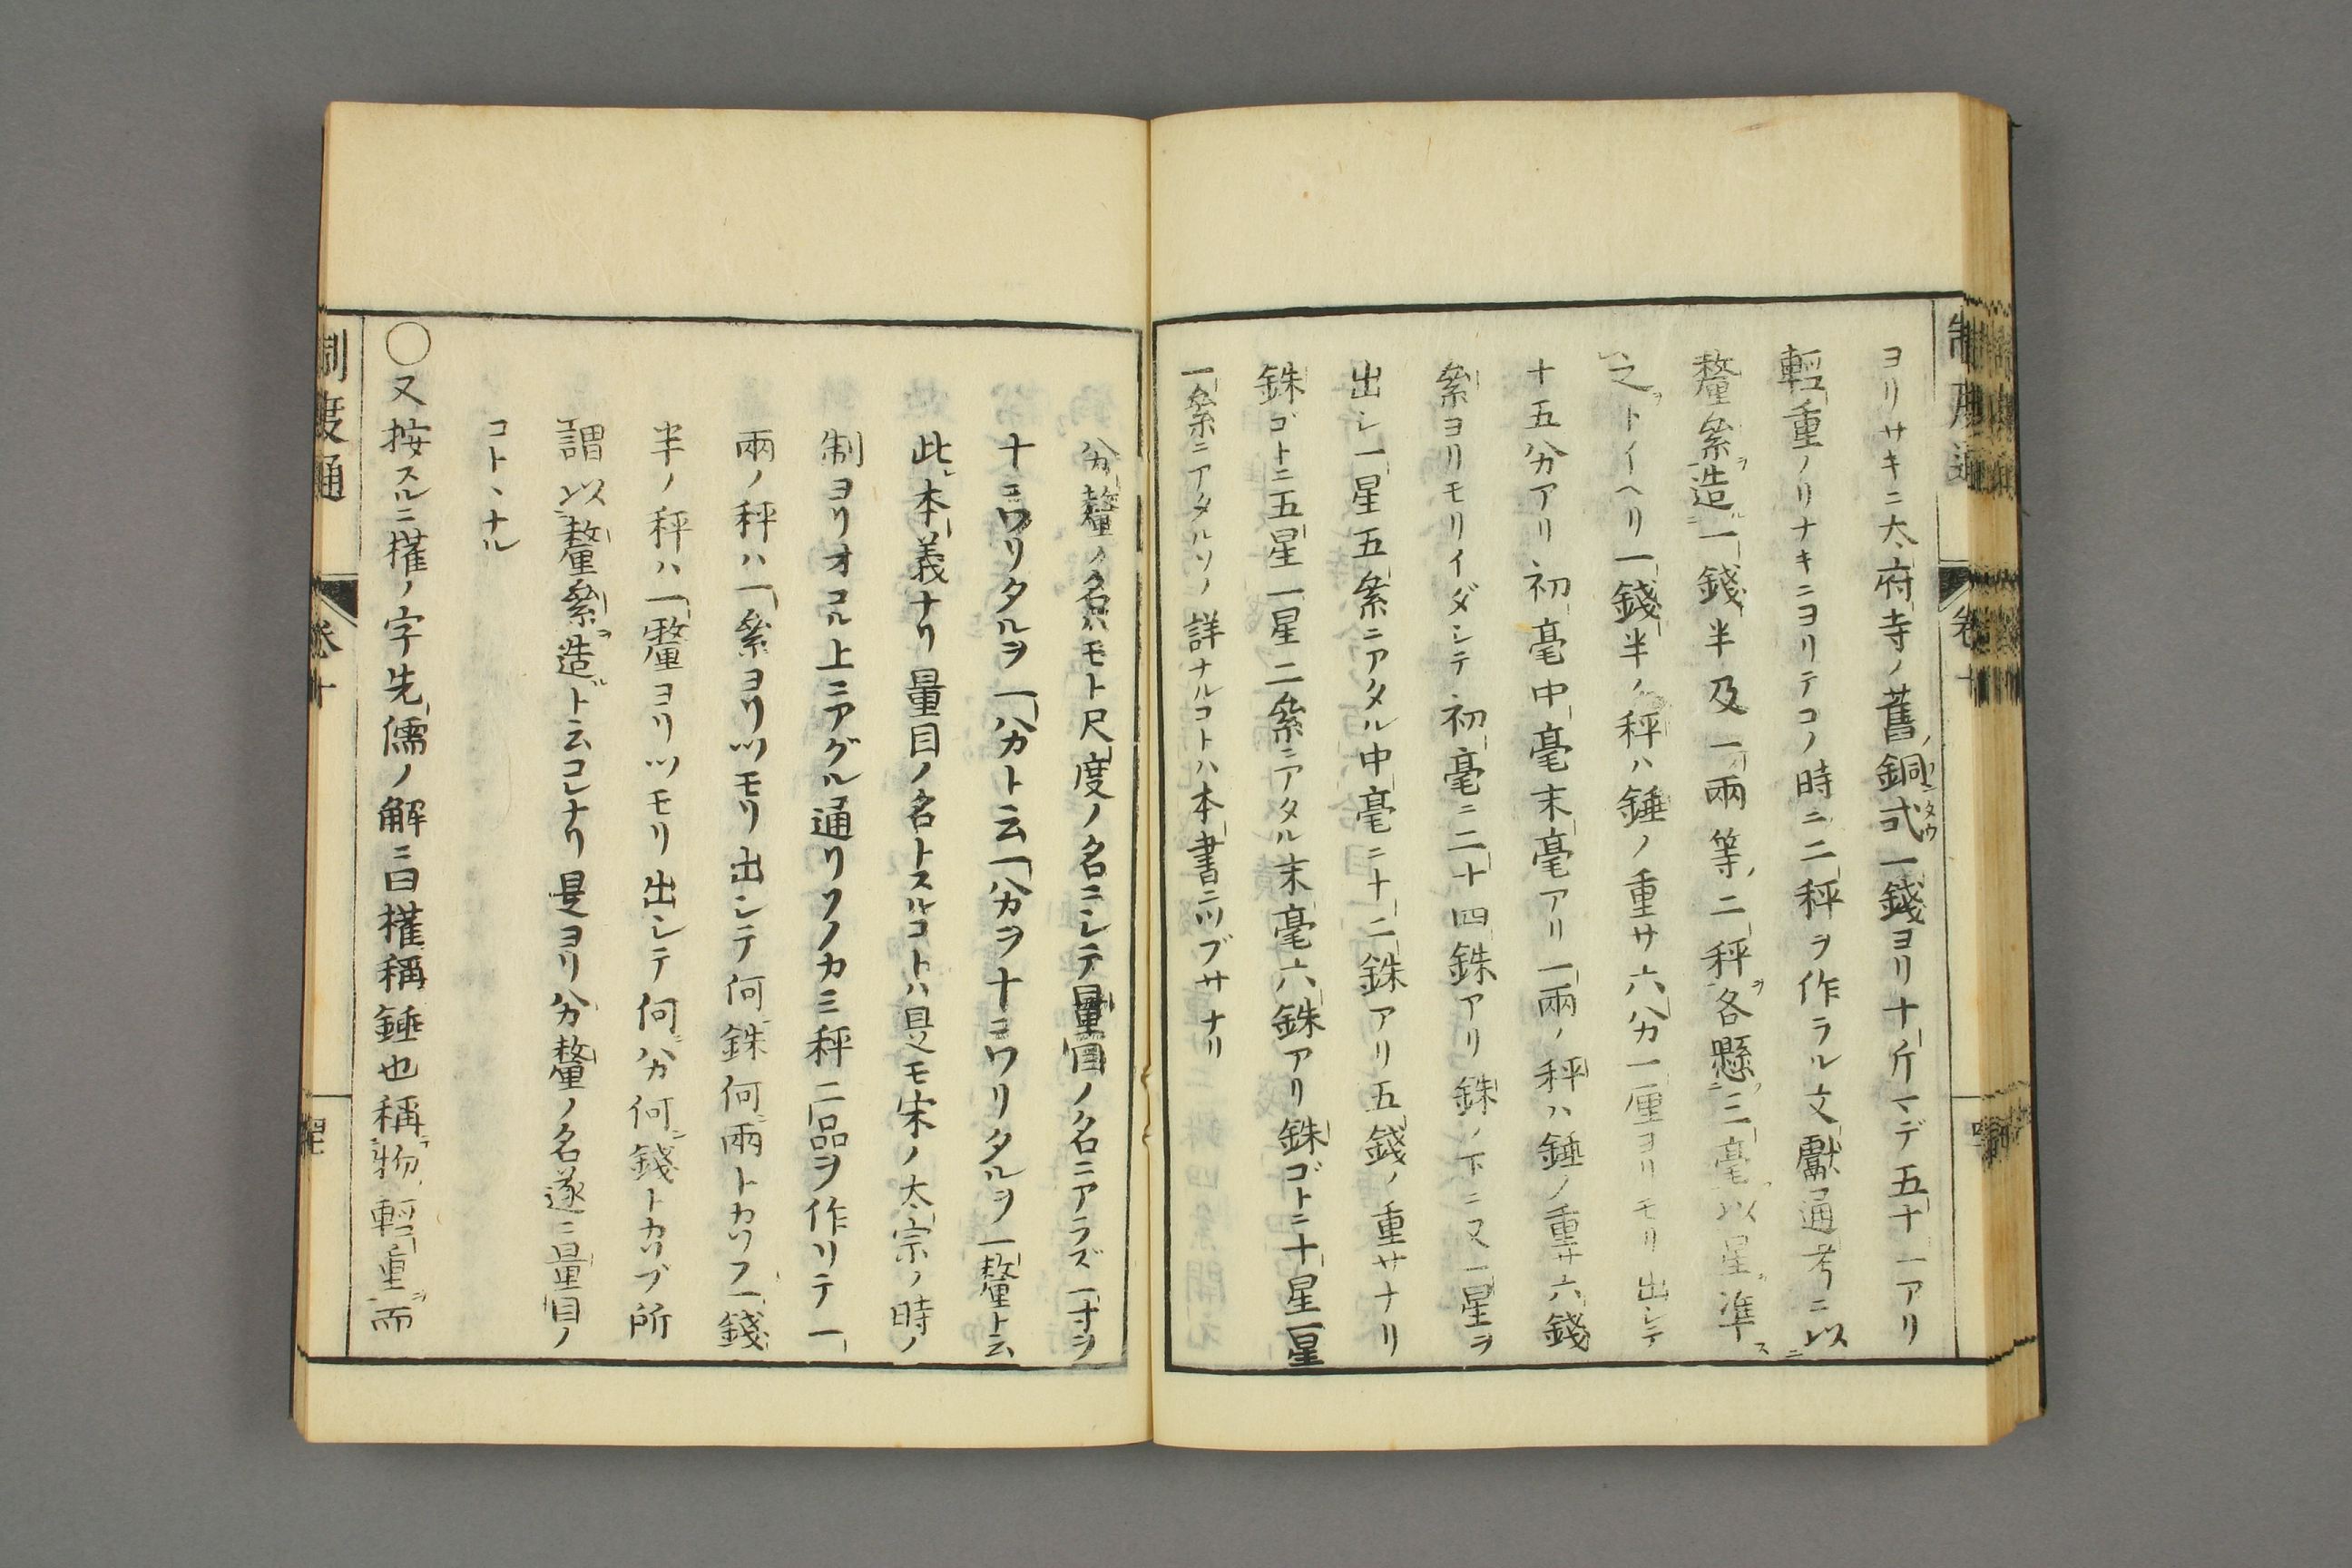 ヨリサキニ太府寺ノ舊銅式一錢ヨリ十斤マデ五十一アリ
輕重ノリナキニヨリテコノ時ニ二秤ヲ作ラル文獻通考ニ以
釐絫造一錢半及一兩等二秤各懸三毫以星準
之トイヘリ一錢半ノ秤ハ錘ノ重サ六分一厘ヨリモリ出シテ
十五分アリ初毫中毫末毫アリ一兩ノ秤ハ錘ノ重サ六錢
絫ヨリモリイダシテ初毫ニ二十四銖アリ銖ノ下ニ又一星ヲ
出シ一星五絫ニアタル中毫ニ十二銖アリ五錢ノ重サナリ
銖ゴトニ五星一星二絫ニアタル末毫六銖アリ銖ゴトニ十星一星
一絫ニアタルソノ詳ナルコトハ本書ニツブサナリ
分釐ノ名ハモト尺度ノ名ニシテ量目ノ名ニアラズ一寸ヲ
十ニワリタルヲ一分ト云一分ヲ十ニワリタルヲ一釐ト云
此本義ナリ量目ノ名トスルコトハ是モ宋ノ太宗ノ時ノ
制ヨリオコル上ニアグル通リワノカニ秤二品ヲ作リテ一
兩ノ秤ハ一絫ヨリツモリ出シテ何銖何兩トカゾフ一錢
半ノ秤ハ一釐ヨリツモリ出シテ何分何錢トカゾブ所
謂以釐絫造ト云コレナリ是ヨリ分釐ノ名遂ニ量目ノ
コトヽナル
○又按スルニ權ノ字先儒ノ解ニ曰權稱錘也稱物輕重而
制度通
卷十